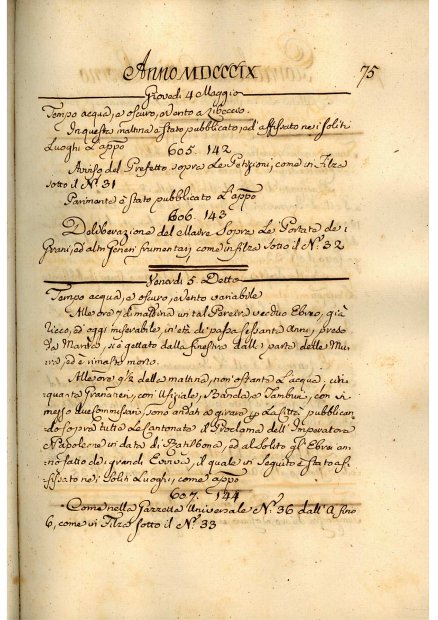 Anno MDCCCIX 75
Giovedi 4 Maggio
Tempo acqua, e oscuro, e vento a
In questa mattina è stato pubblicato, ed' affissato nei soliti
Luoghi L'appo
605. 142
Avviso del Prefetto sopra Le Petizioni, come in Filza
sotto il Nº 31
Parimente è stato pubblicato L'appo
606. 143
Deliberazione del Maire Sopra Le Portate dei
Grani, ed altri Generi frumentarj, come in filza Sotto il Nº 32
Venerdi 5 Detto
Tempo acqua, e oscuro, e vento variabile
Alle ore 7 di mattina un tal Pereira vecchio Ebreo, già
ricco, ed oggi miserabile, in età di passa sessanta Anni, preso
da Mania, si è gettato dalla finestra dall' parte delle Mu
ra, ed è rimasto morto.
Alle ore 9½ della mattina, non' ostante L'acqua, cin
quanta Granatieri, con Ufiziale, Banda, e Tamburi, con
mezzo due Commissari, sono andati a girare La Città pubblican
do sopra tutte Le Cantonate il Proclama dell' Imperatore
Napoleone in data di Ratisbona, ed al solito gl' Ebrei an
no fatto dei grandi Evviva, il quale in Seguito è stato af
fissato nei Soliti Luoghi, come appo
607. 144
Come nella Gazzetta Universale Nº 36 dall' a fino
6, come in Filza sotto il Nº 33